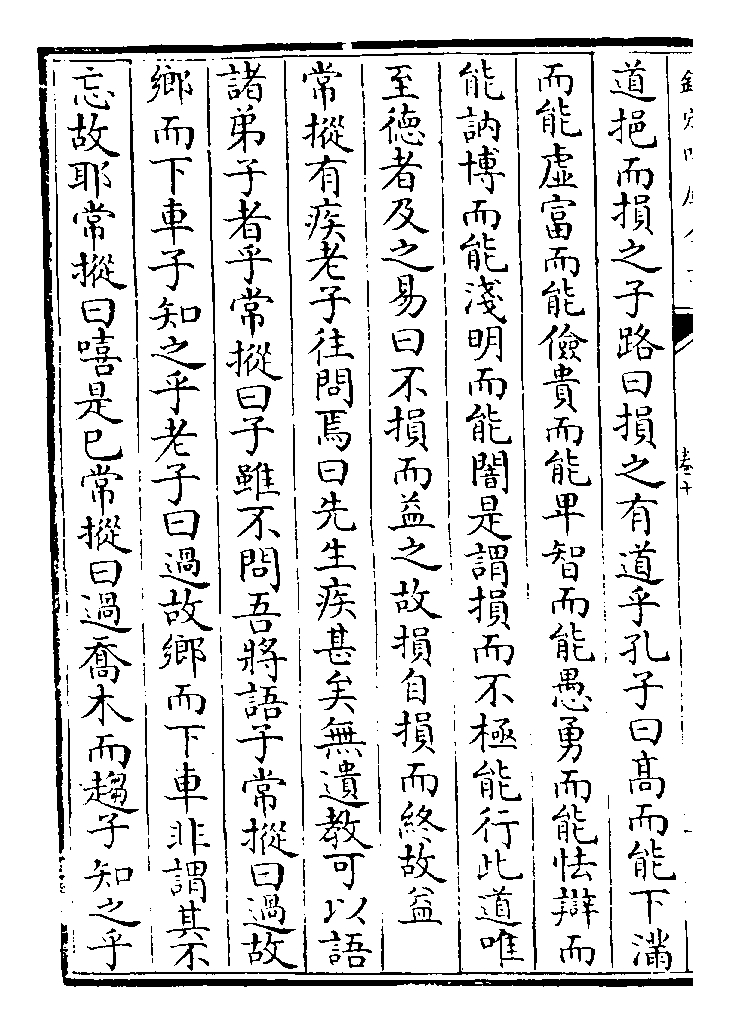 道挹而損之子路曰損之有道乎孔子曰髙而能下滿
而能虛富而能儉貴而能卑智而能愚勇而能怯辯而
能訥博而能淺明而能闇是謂損而不極能行此道唯
至德者及之易曰不損而益之故損自損而終故益
常摐有疾老子往問焉曰先生疾甚矣無遺教可以語
諸弟子者乎常摐曰子雖不問吾將語子常摐曰過故
鄉而下車子知之乎老子曰過故鄉而下車非謂其不
忘故耶常摐曰嘻是已常摐曰過喬木而趨子知之乎
卷十